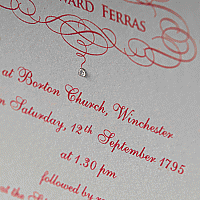 WARD FERRAS
at Borton Church, Winchester
on Saturday, 12th September 1795
at 1.30 pm
followed by
at the